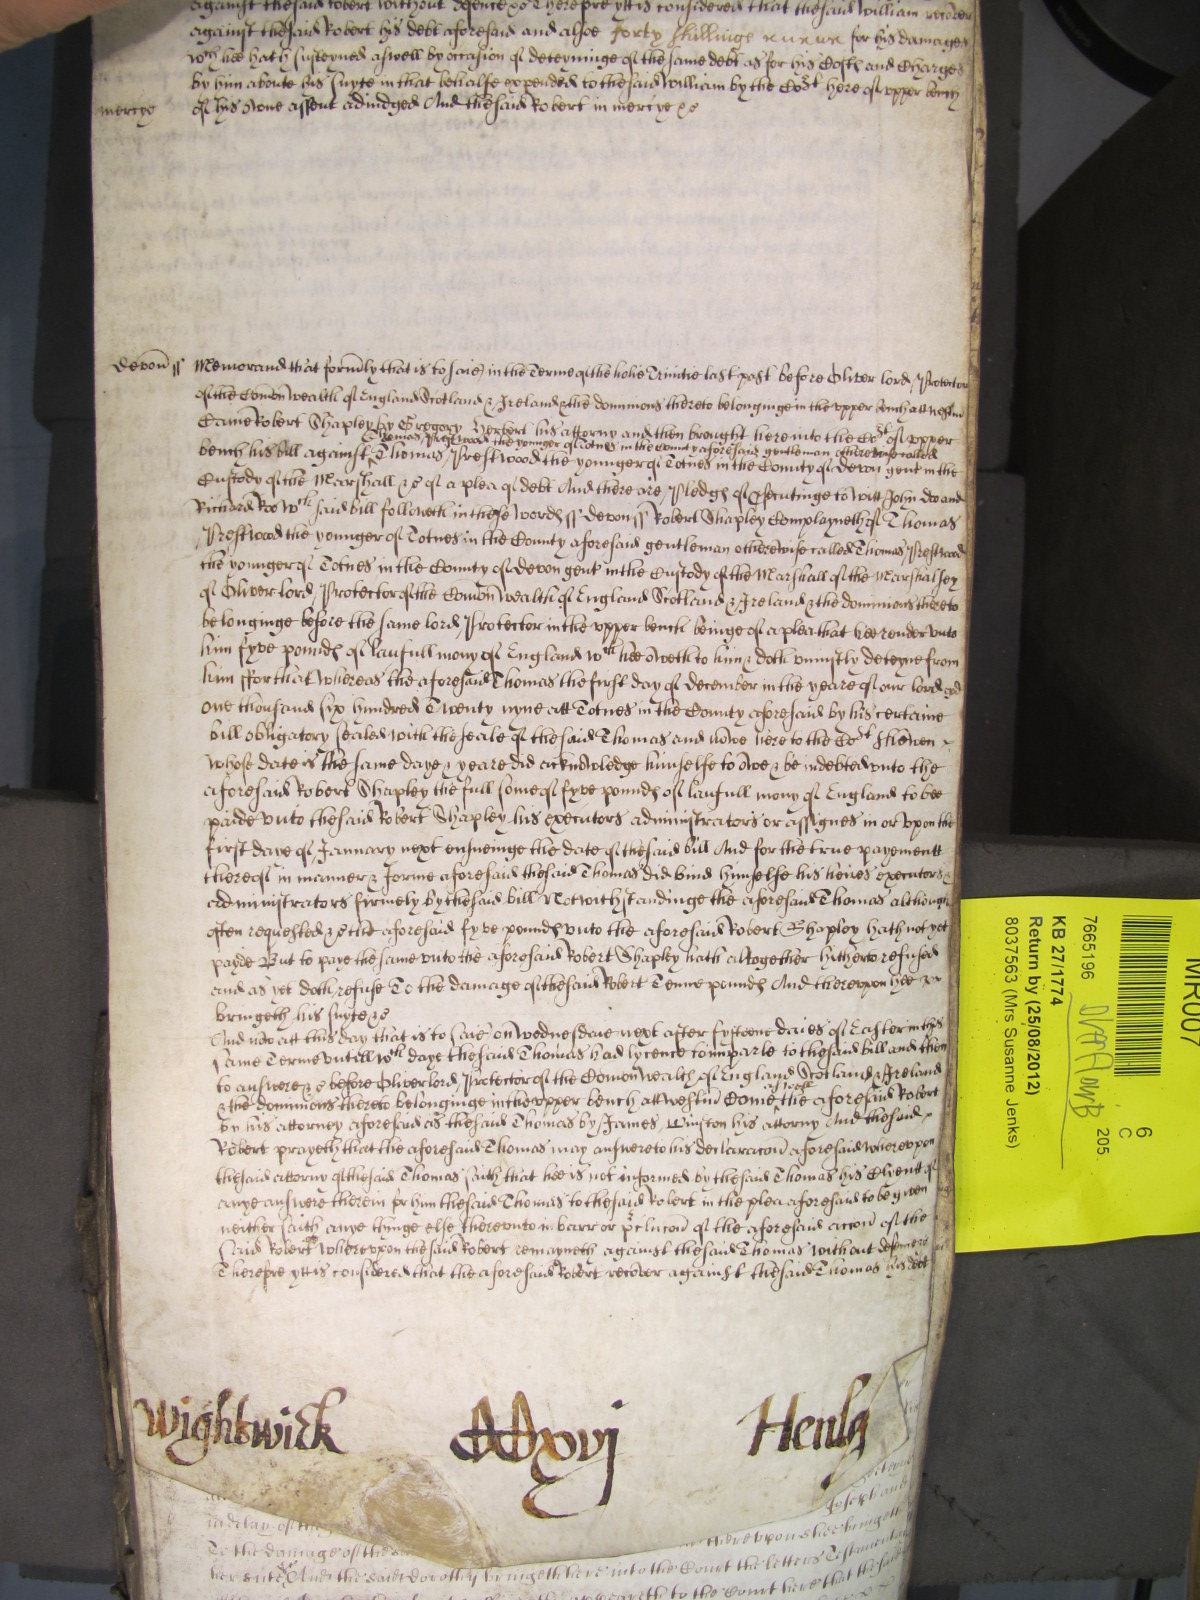 against the said Robert without defence &c Therefore ytt is considered that the said William recover
against the said Robert his debt aforesaid and alsoe forty shillinge for his damages
wch hee hath susteyned aswell by occasion of deteyninge of the same debt as for his Costs and Charges
by him aboute his suyte in that behalfe expended to the said William by the Cort here of upper bench
mercye of his owne assent adiudged And the said Robert in mercye &c
Devon ss Memorand that formly that is to saie in the Terme of the holie Trinitie last past before Oliver lord Protector
of the Comon Wealth of England Scotland & Ireland & the dominions thereto belonginge in the upper bench att Westm
Came Robert Shapley by Gregory his attorny and then brought here into the Cort of upper
Thomas Prestwood the younger of Totnes in the County aforesaid gentleman otherwise called
bench his bill against Thomas Prestwood the younger of Totnes in the County of Devon gent in the
Custody of the Marshall &c of a plea of debt And there are Pledge of to witt John Doe and
Richard Roo wch said bill followeth in these words ss Devon ss Robert Shapley Complayneth of Thomas
Prestwood the younger of Totnes in the County aforesaid gentleman otherwise called Thomas Prestwood
the younger of Totnes in the County of Devon gent in the Custody of the Marshall of the Marshalsey
of Oliver lord Protector of the Comon Wealth of England Scotland & Ireland & the dominions thereto
belonginge before the same lord Protector in the upper bench beinge of a plea that hee render unto
him fyve pounds of laufull mony of England wch hee oweth to him & doth uniustly deteyne from
him ffor that whereas the aforesaid Thomas the first day of December in the yeare of our lord god
one thousand six hundred Twenty nyne att Totnes in the County aforesaid by his certaine
bill obligatory sealed with the seale of the said Thomas and nowe here to the Cort shewen
whose date is the same daye & yeare did acknowledge himselfe to owe & be indebted unto the
aforesaid Robert Shapley the full some of fyve pounds of laufull mony of England to bee
paide unto the said Robert Shapley his executors administrators or assignes in or upon the
first daye of January next ensueinge the date of the said bill And for the true payement
thereof in manner & forme aforesaid the said Thomas did bind himselfe his heires executors &
administrators firmely by the said bill Notwithstandinge the aforesaid Thomas although
often requested &c the aforesaid fyve pounds unto the aforesaid Robert Shapley hath not yet
payde But to paye the same unto the aforesaid Robert Shapley hath altogether hitherto refused
and as yet doth refuse To the damage of the said Robert Tenne pounds And thereupon hee
bringeth his suyte &c
And now att this day that is to saie on Wednesdaie next after fyfteene daies of Easter in this
same Terme untill wch daye the said Thomas had lycence to imparle to the said bill and then
to answere &c before Oliver lord Protector of the Comon Wealth of England Scotland & Ireland
& the dominions thereto belonginge in the upper bench att Westm Come as well the aforesaid Robert
by his attorney aforesaid as the said Thomas by James Winston his attorny And the said
Robert prayeth that the aforesaid Thomas may answere to his declaracon aforesaid whereupon
the said attorny of the said Thomas saith that hee is not informed by the said Thomas his Clyent of
anye answere therein for him the said Thomas to the said Robert in the plea aforesaid to be given
neither saith anye thinge else thereunto in barr or preclucon of the aforesaid accon of the
said Robert Whereupon the said Robert remayneth against the said Thomas without defence
Therefore ytt is considered that the aforesaid Robert recover against the said Thomas his debt
Wightwick xvj Henly
Joseph
in delay of the
To the damage of the whereupon hee bringeth
her suite And the said Dorothy bringeth here into the Court the letters Testamentary
to the Court here that the said
MR007
6
C
7665196 205.
KB 27/1774
Return by (25/08/2012)
8037563 (Mrs Susanne Jenks)